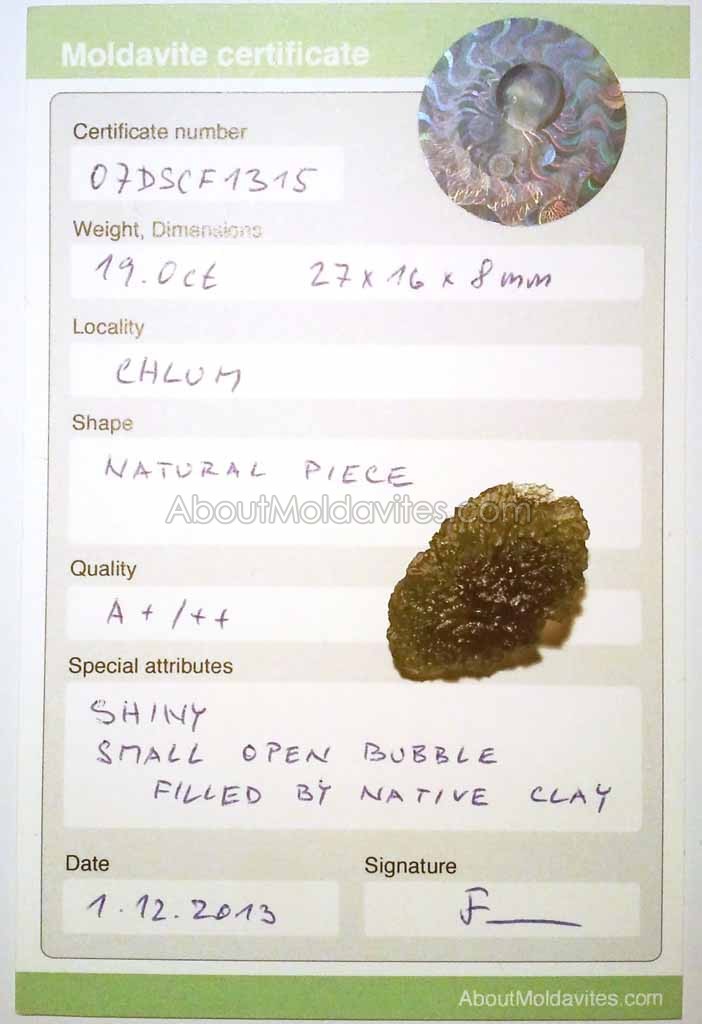 Moldavite certificate
Certificate number
07DSCF1315
Weight, Dimensions
19.0ct 27 x 16 x 8 mm
Locality
CHLUM
Shape
NATURAL PIECE
AboutMoldavites.com
Quality
A + / + +
Special attributes
SHINY
SMALL OPEN BUBBLE
FILLED BY NATIVE CLAY
Date Signature
1.12.2013
AboutMoldavites.com